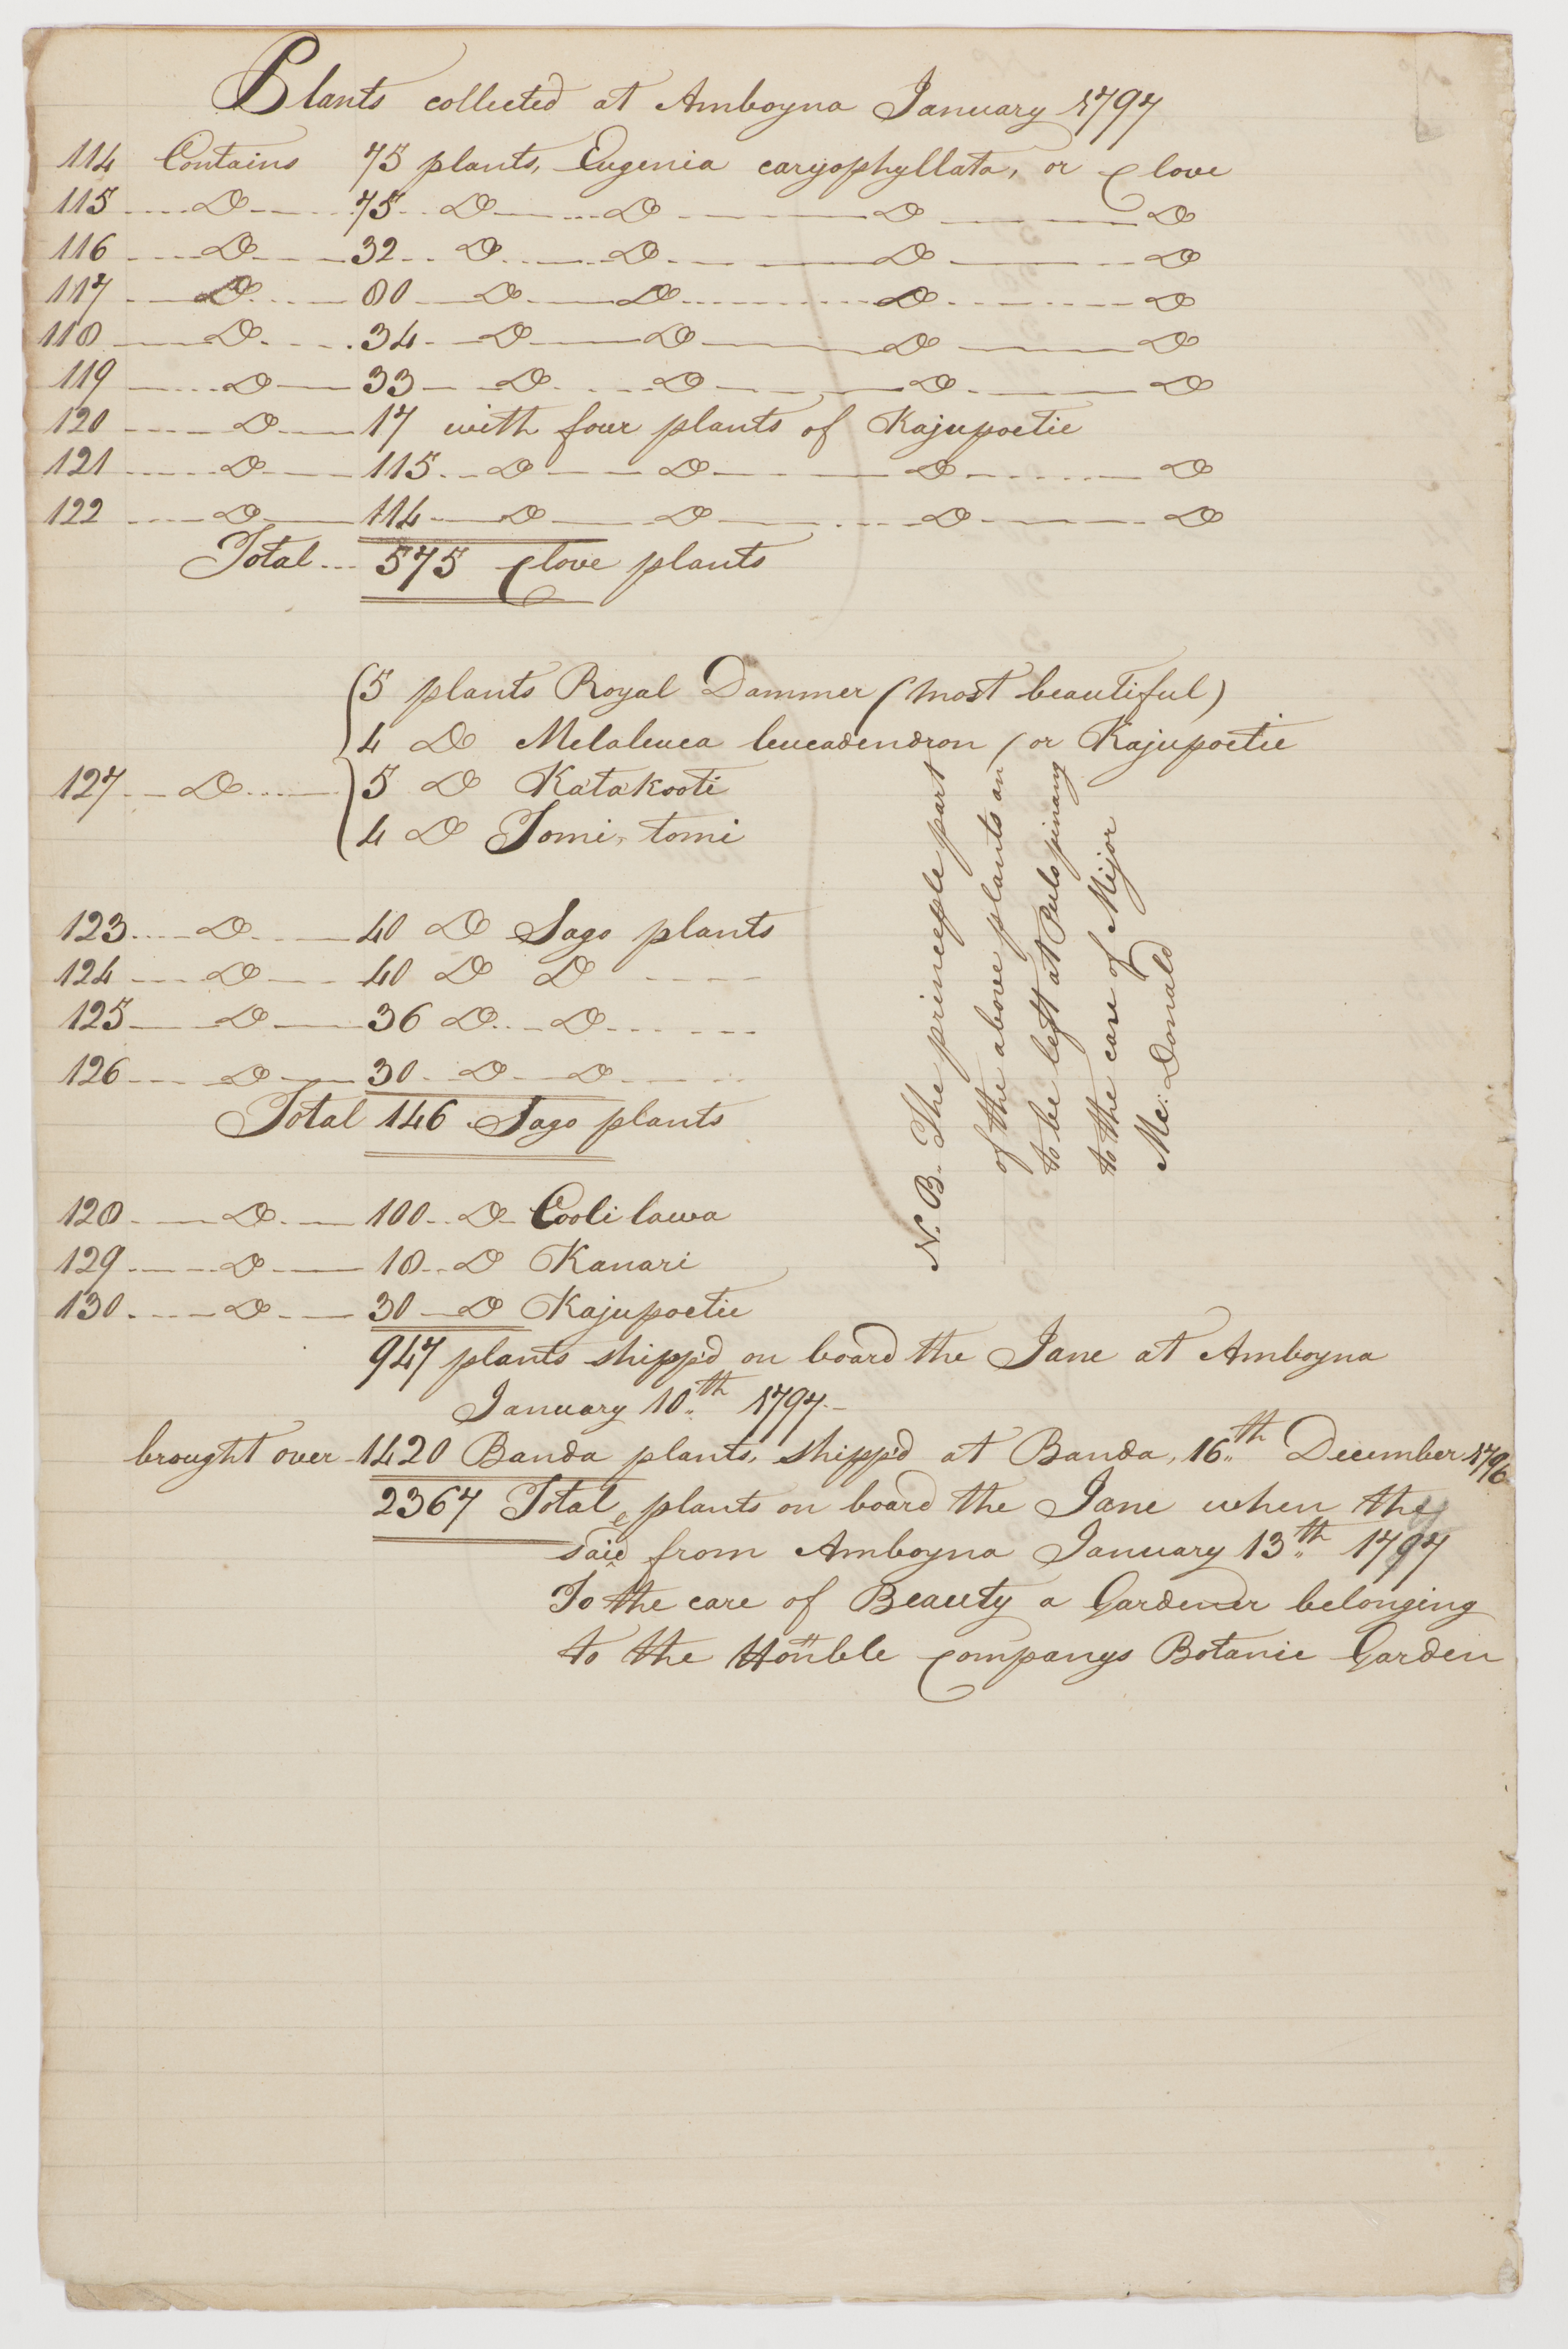 Plants collected at Amboyna January 1797
114 Contains 75 plants, Eugenia caryophyllata, or Clove
115 ---- Do ---- 75 -- Do ---- Do ---- Do ---- Do
116 ---- Do ---- 32 -- Do ---- Do ---- Do ---- Do
117 ---- Do ---- 80 -- Do ---- Do ---- Do ---- Do
118 ---- Do ---- 34 -- Do ---- Do ---- Do ---- Do
119 ---- Do ---- 33 -- Do ---- Do ---- Do ---- Do
120 ---- Do ---- 17 with four plants of Kajupoetie
121 ---- Do ---- 115 -- Do ---- Do ---- Do ---- Do
122 ---- Do ---- 114 -- Do ---- Do ---- Do ---- Do
Total --- 575 Clove plants
5 plants Royal Dammer (most beautiful)
4 Do Melaleuca leucadendron (or Kajupoetie
127 -- Do ---- 5 Do Katakooti
4 Do Tomi, tomi
123 ---- Do ---- 40 Do Sago plants
124 ---- Do ---- 40 Do Do ----
125 ---- Do ---- 36 Do -- Do ----
126 ---- Do ---- 30 - Do -- Do ----
Total 146 Sago plants
N.B. The princeple part
of the above plants an
to be left at Pulo pinang
to the care of Mijor
Mc. Donald
128 ---- Do ---- 100 -- Do Cooli lawa
129 ---- Do ---- 18 -- Do Kanari
130 ---- Do ---- 30 -- Do Kajupoetie
947 plants shipp'd on board the Jane at Amboyna
January 10th 1797.-
brought over - 1420 Banda plants, shipp'd at Banda, 16th December 1796
2367 Total, plants on board the Jane when they
said from Amboyna January 13th 1797
To the care of Beauty a Gardener belonging
to the Honble Companys Botanic Garden